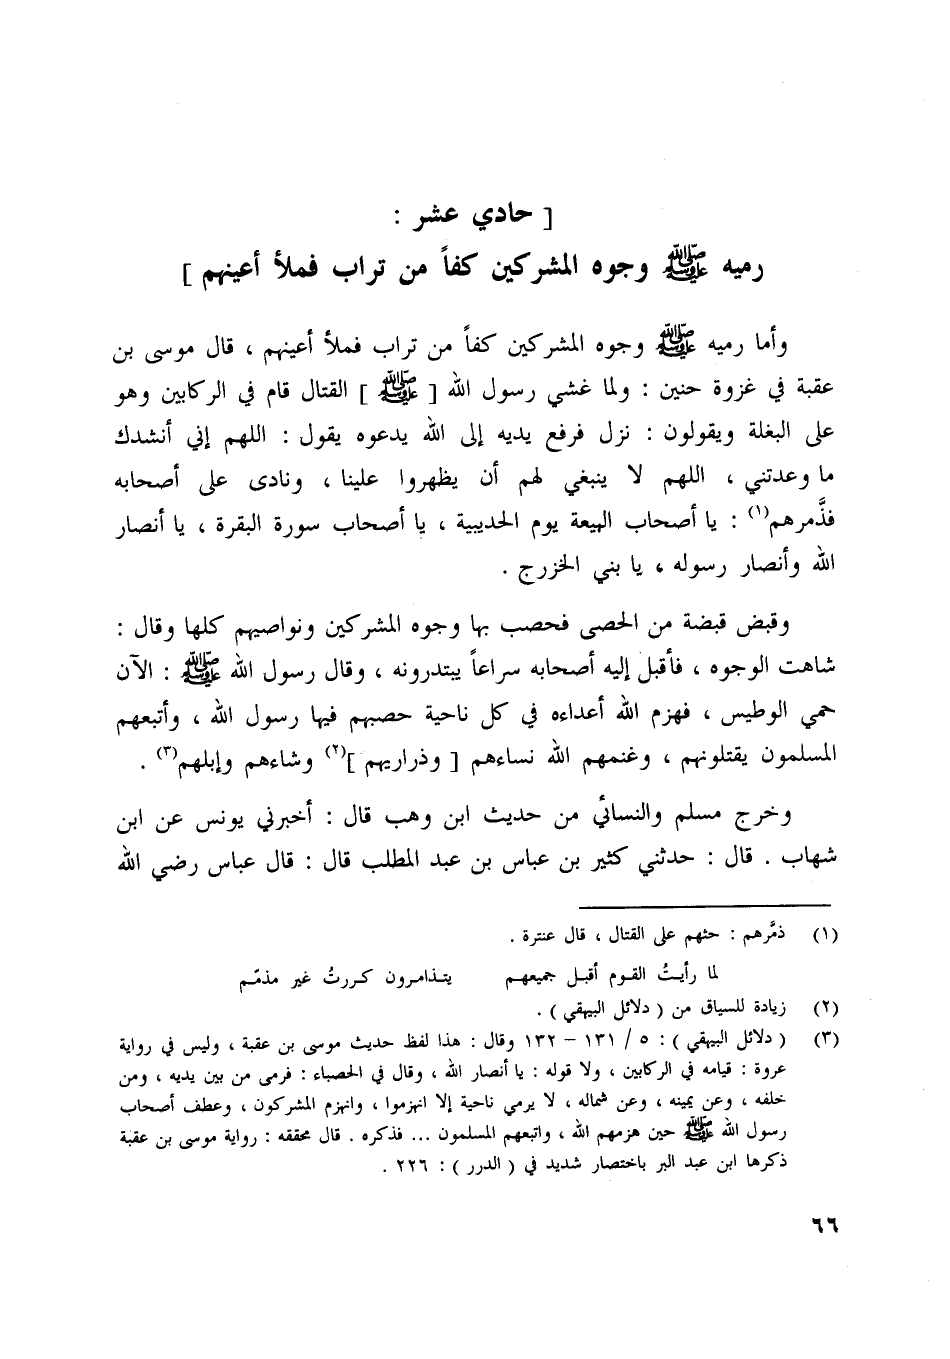 [ حادي عشر :
رميه ﷺ وجوه المشركين كفاً من تراب فملأ أعينهم ]
وأما رميه ﷺ وجوه المشركين كفاً من تراب فملأ أعينهم ، قال موسى بن
عقبة في غزوة حنين : ولما غشي رسول الله [ ﷺ ] القتال قام في الركابين وهو
على البغلة ويقولون : نزل فرفع يديه إلى الله يدعوه يقول : اللهم إني أنشدك
ما وعدتني ، اللهم لا ينبغي لهم أن يظهروا علينا ، ونادى على أصحابه
فذَّمرهم(١) : يا أصحاب البيعة يوم الحديبية ، يا أصحاب سورة البقرة ، يا أنصار
الله وأنصار رسوله ، يا بني الخزرج .
وقبض قبضة من الحصى فحصب بها وجوه المشركين ونواصيهم كلها وقال :
شاهت الوجوه ، فأقبل إليه أصحابه سراعاً يبتدرونه ، وقال رسول الله ﷺ : الآن
حمي الوطيس ، فهزم الله أعداءه في كل ناحية حصبهم فيها رسول الله ، وأتبعهم
المسلمون يقتلونهم ، وغنمهم الله نساءهم [ وذراريهم ](٢) وشاءهم وإبلهم(٣) .
وخرج مسلم والنسائي من حديث ابن وهب قال : أخبرني يونس عن ابن
شهاب . قال : حدثني كثير بن عباس بن عبد المطلب قال : قال عباس رضي الله
(١) ذمَّرهم : حثهم على القتال ، قال عنترة .
لما رأيتُ القوم أقبل جميعهم يتذامرون كررتُ غير مذمّم
(٢) زيادة للسياق من ( دلائل البيهقي ) .
(٣) ( دلائل البيهقي ) : ٥ / ١٣١ – ١٣٢ وقال : هذا لفظ حديث موسى بن عقبة ، وليس في رواية
عروة : قيامه في الركابين ، ولا قوله : يا أنصار الله ، وقال في الحصباء : فرمى من بين يديه ، ومن
خلفه ، وعن يمينه ، وعن شماله ، لا يرمي ناحية إلا انهزموا ، وانهزم المشركون ، وعطف أصحاب
رسول الله ﷺ حين هزمهم الله ، واتبعهم المسلمون ... فذكره . قال محققه : رواية موسى بن عقبة
ذكرها ابن عبد البر باختصار شديد في ( الدرر ) : ٢٢٦ .
٦٦